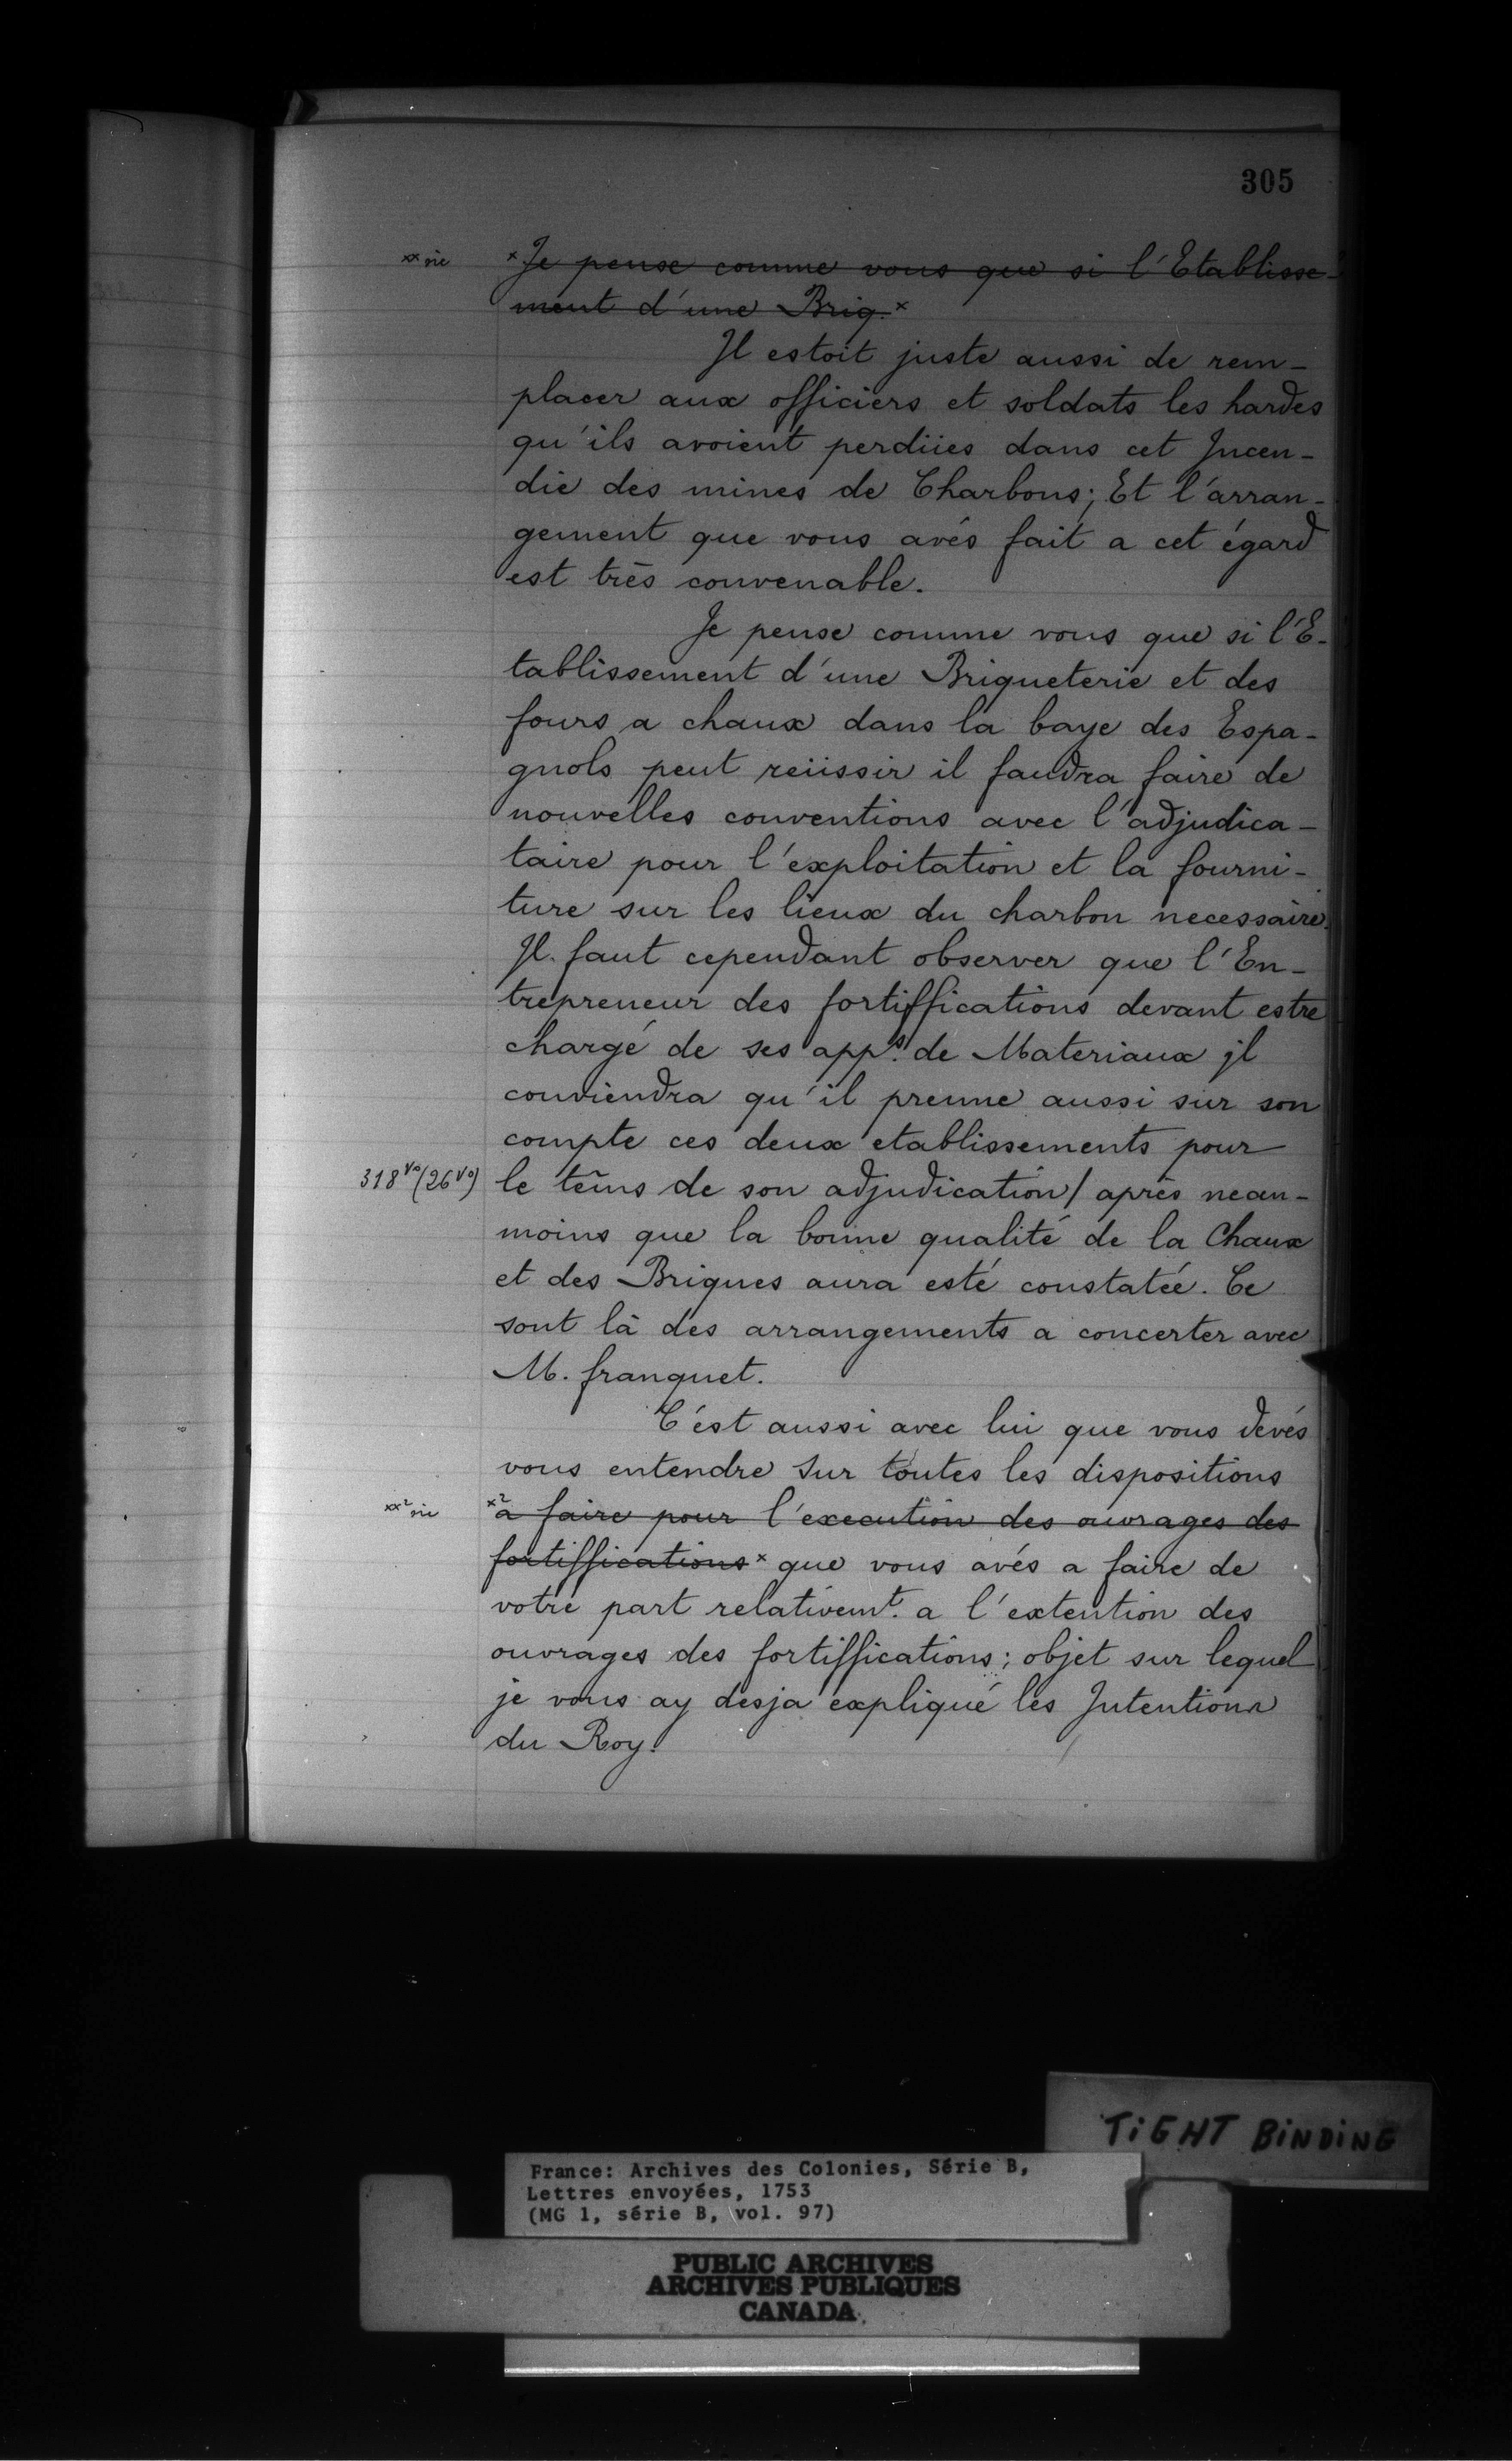 305
xx sic
x Je pense comme vous que si l'Etablisse-
ment d'une Briq. x
Il estoit juste aussi de rem-
placer aux officiers et soldats les hardes
qu'ils avoient perdües dans cet Incen-
die des mines de Charbons; Et l'arran-
gement que vous avés fait a cet égard
est très convenable.
Je pense comme vous que si l'E-
tablissement d'une Briqueterie et des
fours a chaux dans la baye des Espa-
gnols peut reüssir il faudra faire de
nouvelles conventions avec l'adjudica-
taire pour l'exploitation et la fourni-
ture sur les lieux du charbon necessaire.
Il faut cependant observer que l'En-
trepreneur des fortiffications devant estre
chargé de ses app.s de Materiaux jl
conviendra qu'il prenne aussi sur son
compte ces deux etablissements pour
318 vo (26 vo)
le tems de son adjudication / après nean-
moins que la bonne qualité de la Chaux
et des Briques aura esté constatée. Ce
sont là des arrangements a concerter avec
M. franquet.
C'est aussi avec lui que vous devés
vous entendre sur toutes les dispositions
xx² sic
x² a faire pour l'execution des ouvrages des
fortiffications x que vous avés a faire de
votre part relativemt. a l'extention des
ouvrages des fortiffications; objet sur lequel
je vous ay desja expliqué les Intentions
du Roy.
TiGHT BiNDiNG
France: Archives des Colonies, Série B,
Lettres envoyées, 1753
(MG 1, série B, vol. 97)
PUBLIC ARCHIVES
ARCHIVES PUBLIQUES
CANADA